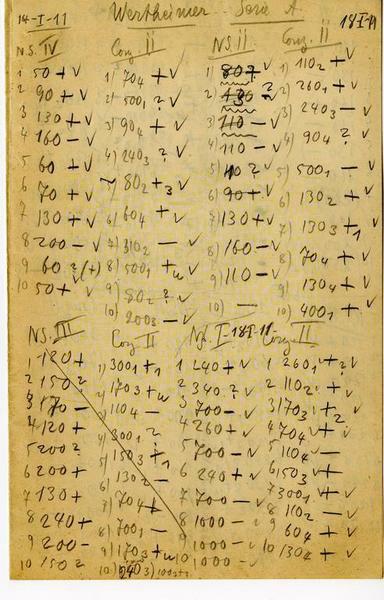 14-I-11 Wertheimer - Serie A. 18-I-11
N.S. IV Conz. II N.S. II Conz. II
1 50 + v 1) 70₄ + v 1) 80? 1) 110₂ + v
2 90 + v 2) 500₁ ? v 2) 130 ? 2) 260₁ + v
3 130 + v 3) 90₄ + v 3) 110 - v 3) 240₃ - v
4 160 - v 4) 240₃ ? v 4) 110 - v 4) 90₄ ? v
5 60 + v 5 80₂ + ₃ v 5) 110 ? v 5) 500₁ - v
6 70 + v 6) 60₄ + v 6) 90 + v 6) 130₂ + v
7 130 + v 7) 310₂ - v 7) 130 + v 7) 130₃ + ₁ v
8 200 - v 8) 500₁ + v 8) 160 - v 8) 70₄ + v
9 60 ? (+) v 9) 80₂ ? v 9) 110 - v 9) 130₄ + v
10 50 + v 10) 200₃ - v 10) - 10) 400₁ + v
N.S. III Conz. II N.S. I - 18-I-11 - Conz. II
1 120 + 1) 300₁ + ₁ 1 240 + v 1 260₁ v + ₂ v
2 150 ? 2) 170₃ + 2 340 ? v 2 110₂ + v
3 170 - 3) 110₄ - 3 700 - v 3 170₃ + ₂ v
4 120 + 4) 300₁ ? 4 260 + v 4 70₄ v + v
5 200 ? 5) 150₃ + ₁ 5 700 - v 5 110₄ - v
6 200 + 6) 130₂ - 6 240 + v 6 150₃ v +
7 130 + 7) 70₄ + 7 700 - v 7 300₁ v + v
8 240 + 8) 700₁ - 8 1000 - v 8 110₂ - v
9 200 - 9) 170₃ + 9 1000 - v 9 60₄ + v
10 150 ? 10) 10 1000 - v 10 130₄ + v